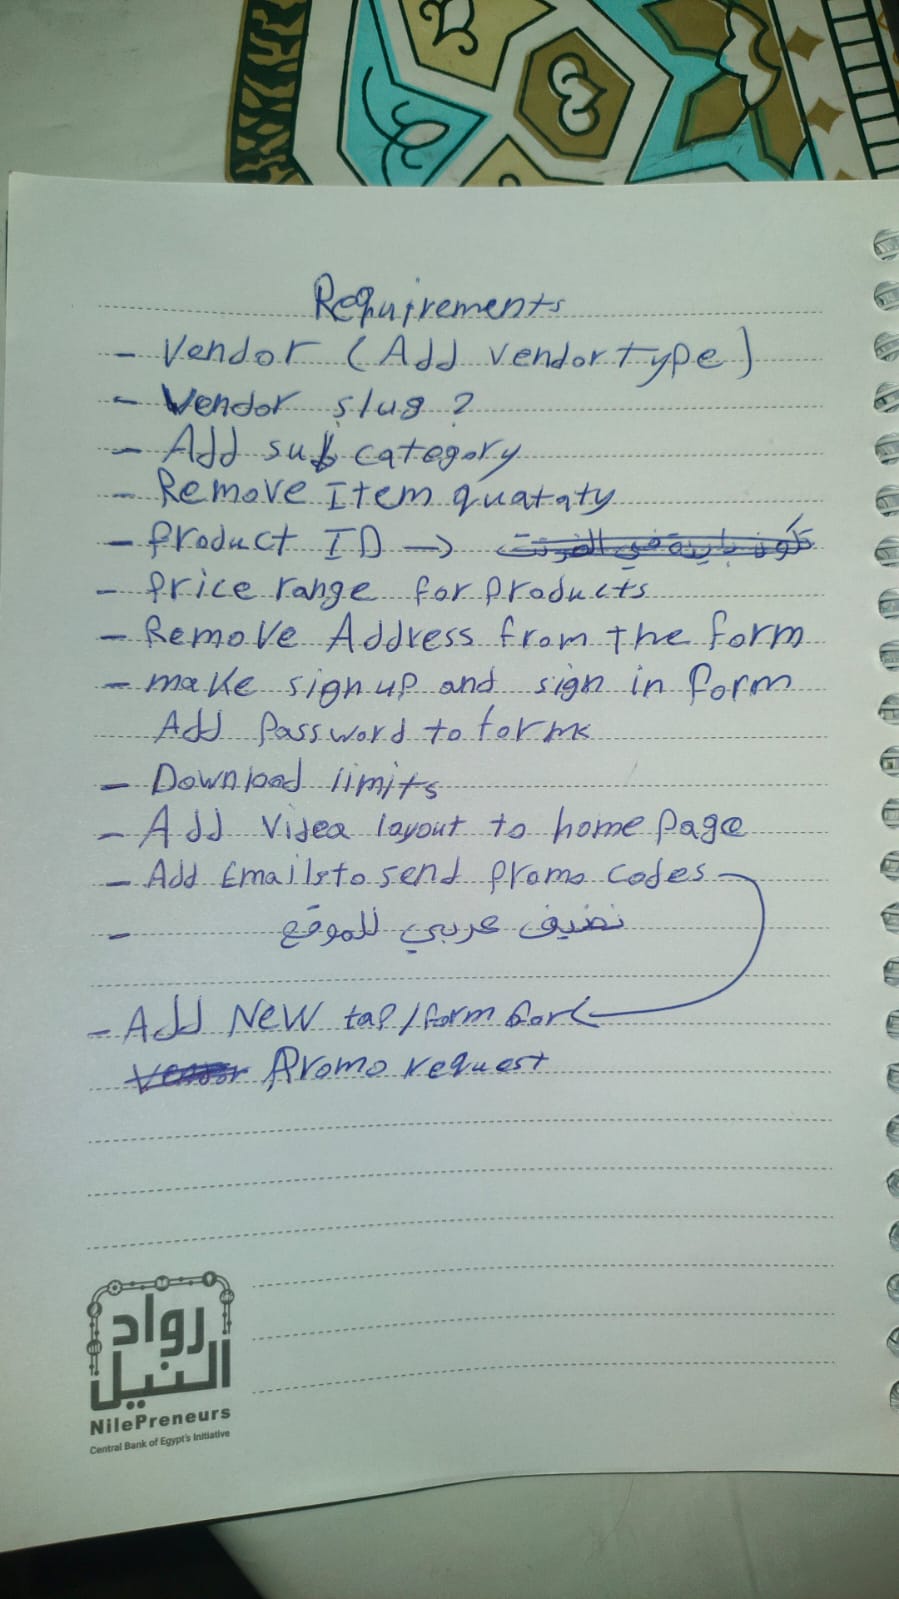 Requirements
- Vendor (Add vendor type)
- Vendor slug?
- Add sub category
- Remove Item quataty
- Product ID → تكون باينة في الفرنت
- Price range for products
- Remove Address from the form
- make sign up and sign in form
Add Password to form
- Download limits
- Add Videa layout to home page
- Add Emails to send promo codes
- نضيف عربي للموقع
- Add New tap/form for
Promo request
رواد
النيل
NilePreneurs
Central Bank of Egypt's Initiative